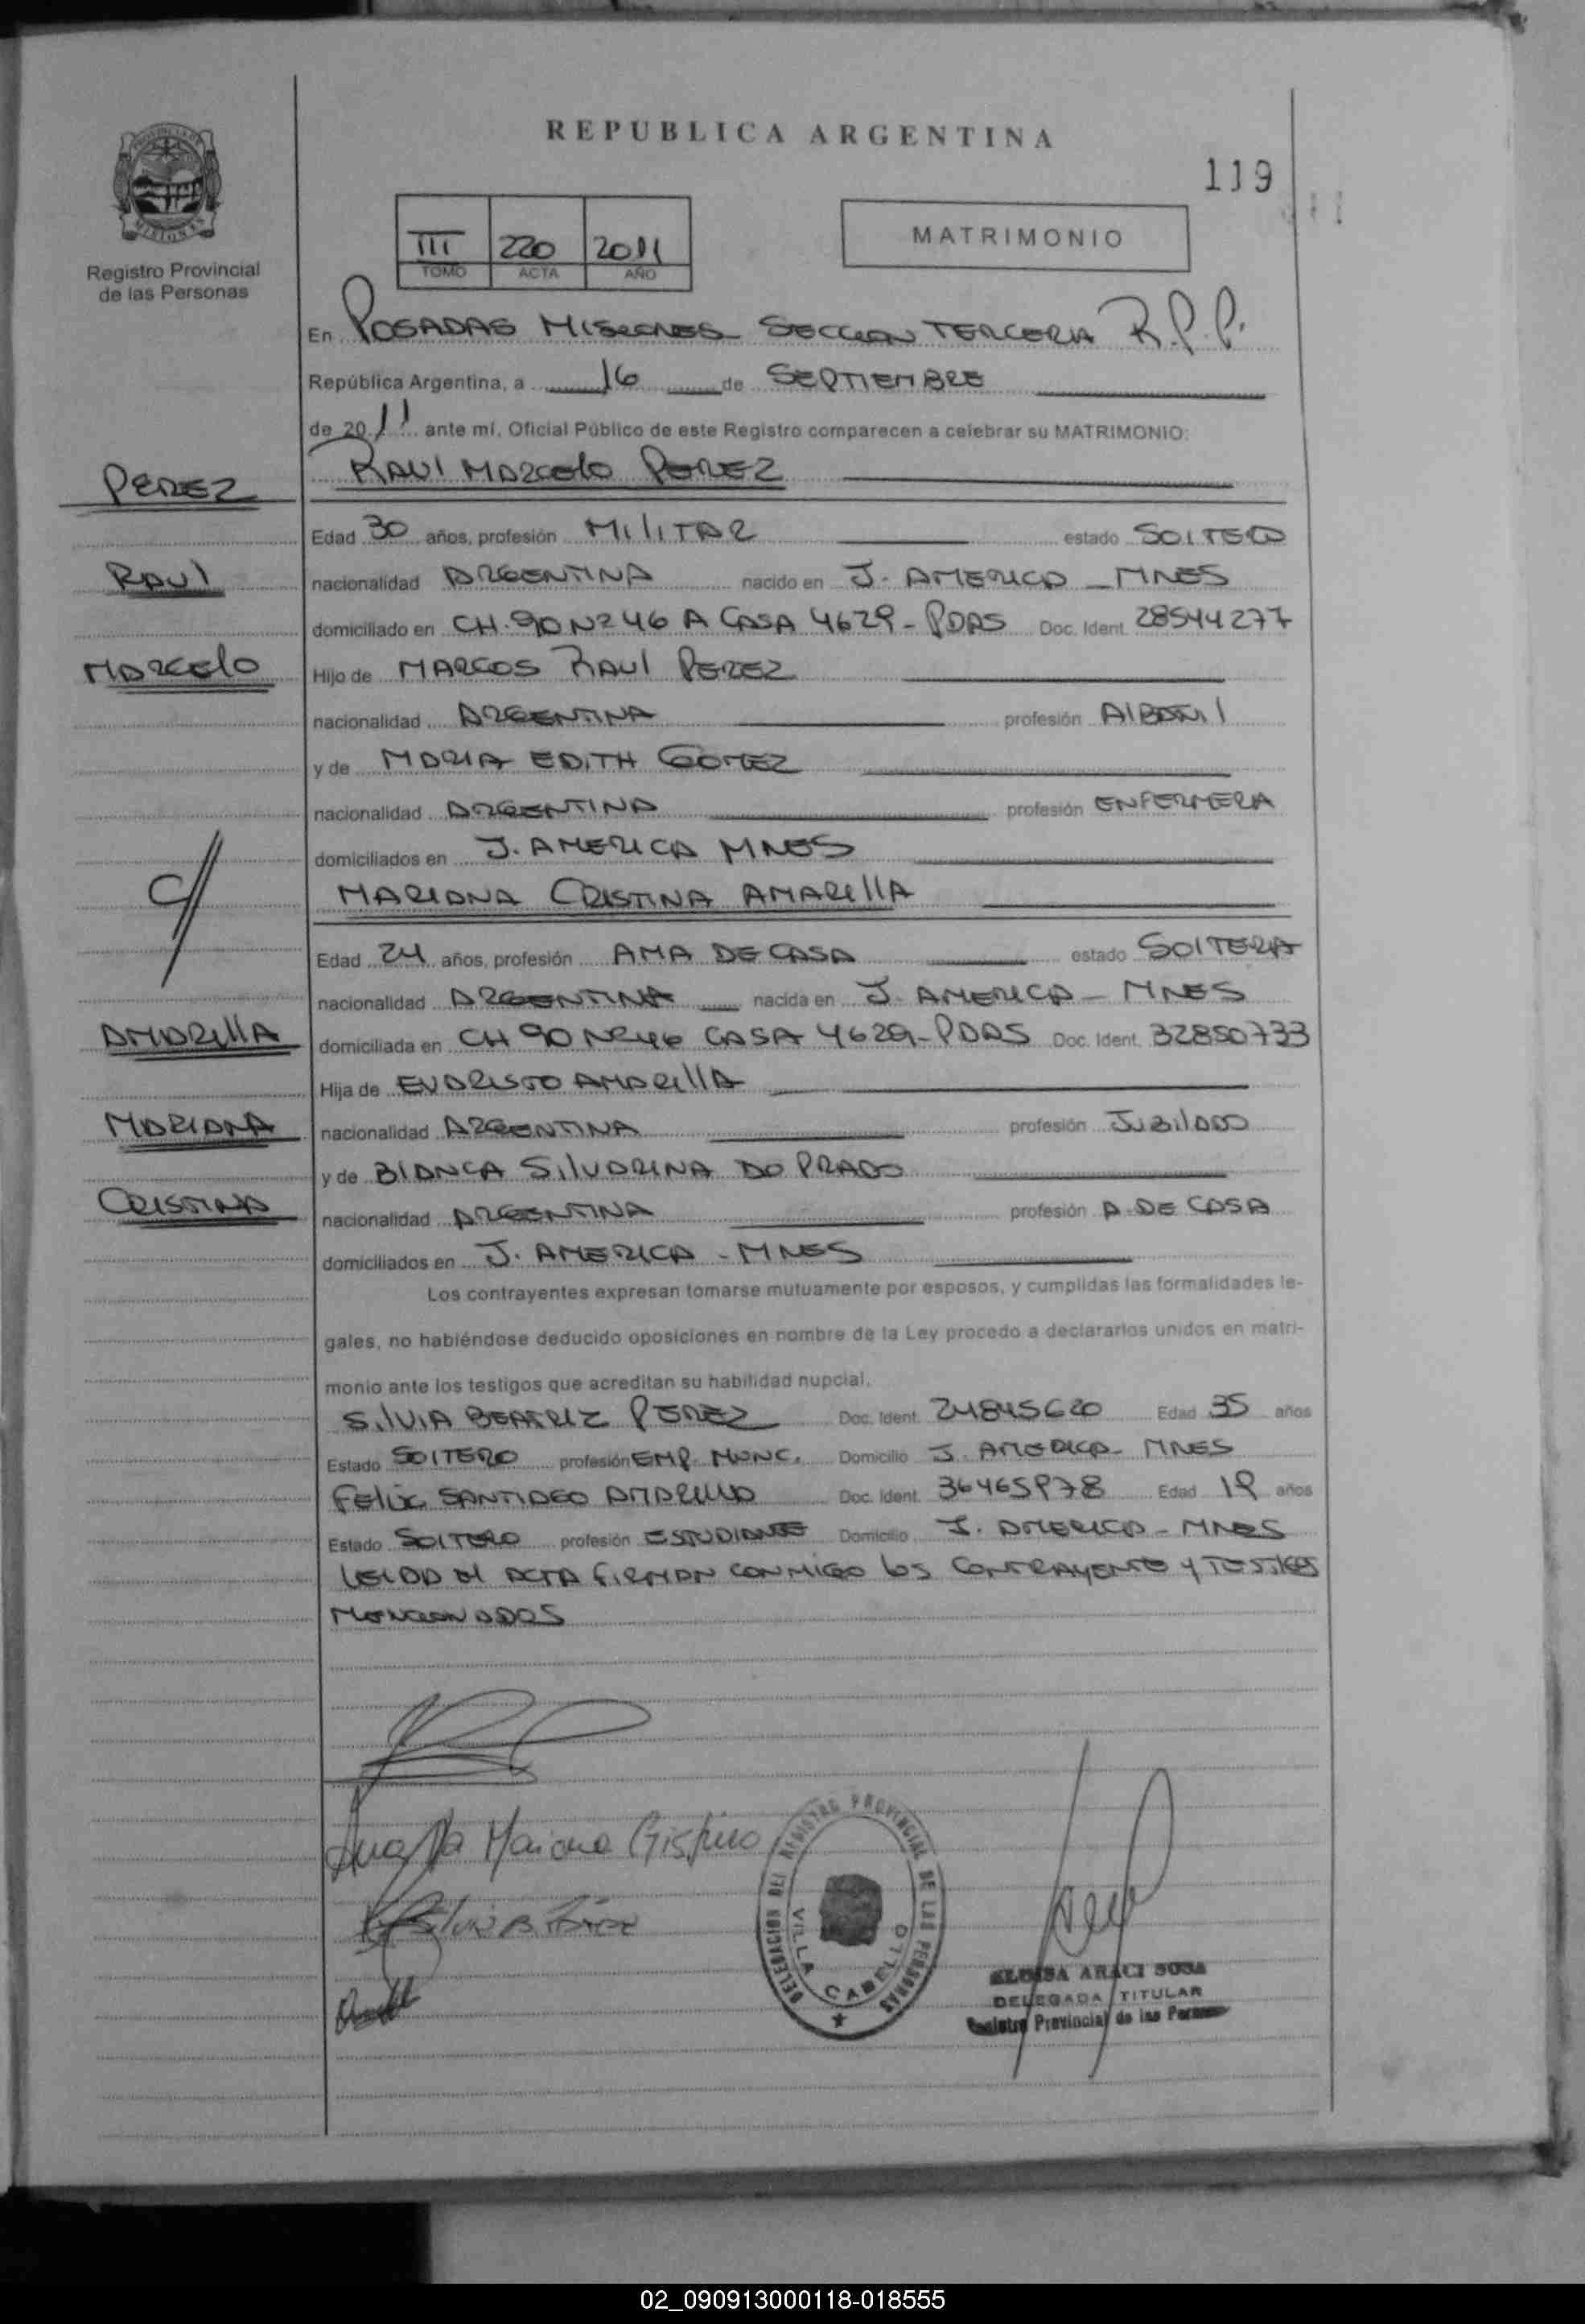 REPUBLICA ARGENTINA
119
MATRIMONIO
III 220 2011
TOMO ACTA AÑO
PROVINCIA DE MISIONES
Registro Provincial
de las Personas
En POSADAS MISIONES SECCION TERCERA R.P.P.
República Argentina, a 16 de SEPTIEMBRE
de 2011 ante mí, Oficial Público de este Registro comparecen a celebrar su MATRIMONIO:
PEREZ
RAUL MARCELO PEREZ
Edad 30 años, profesión MILITAR estado SOLTERO
RAUL
nacionalidad ARGENTINA nacido en J. AMERICA - MNES
domiciliado en CH. 90 Nº 46 A CASA 4629 - PDAS Doc. Ident. 28544277
MARCELO
Hijo de MARCOS RAUL PEREZ
nacionalidad ARGENTINA profesión ALBAÑIL
y de MARIA EDITH GOMEZ
nacionalidad ARGENTINA profesión ENFERMERA
domiciliados en J. AMERICA MNES
C/
MARIANA CRISTINA AMARILLA
Edad 24 años, profesión AMA DE CASA estado SOLTERA
nacionalidad ARGENTINA nacida en J. AMERICA - MNES
AMARILLA
domiciliada en CH 90 Nº 46 CASA 4629 - PDAS Doc. Ident. 32850733
Hija de EVARISTO AMARILLA
MARIANA
nacionalidad ARGENTINA profesión JUBILADO
y de BLANCA SILVARINA DO PRADO
CRISTINA
nacionalidad ARGENTINA profesión A. DE CASA
domiciliados en J. AMERICA - MNES
Los contrayentes expresan tomarse mutuamente por esposos, y cumplidas las formalidades le-
gales, no habiéndose deducido oposiciones en nombre de la Ley procedo a declararlos unidos en matri-
monio ante los testigos que acreditan su habilidad nupcial.
SILVIA BEATRIZ PEREZ Doc. Ident. 24845620 Edad 35 años
Estado SOLTERO profesión EMP. MUNC. Domicilio J. AMERICA - MNES
FELIX SANTIAGO AMARILLA Doc. Ident. 36465978 Edad 19 años
Estado SOLTERO profesión ESTUDIANTE Domicilio J. AMERICA - MNES
LEIDA EL ACTA FIRMAN CONMIGO LOS CONTRAYENTE Y TESTIGOS
MENCIONADOS
Mariana Cristina
DELEGACION DEL REGISTRO PROVINCIAL DE LAS PERSONAS
VILLA CABELLO
ELOISA ARACI SOSA
DELEGADA TITULAR
Registro Provincial de las Personas
02_090913000118-018555